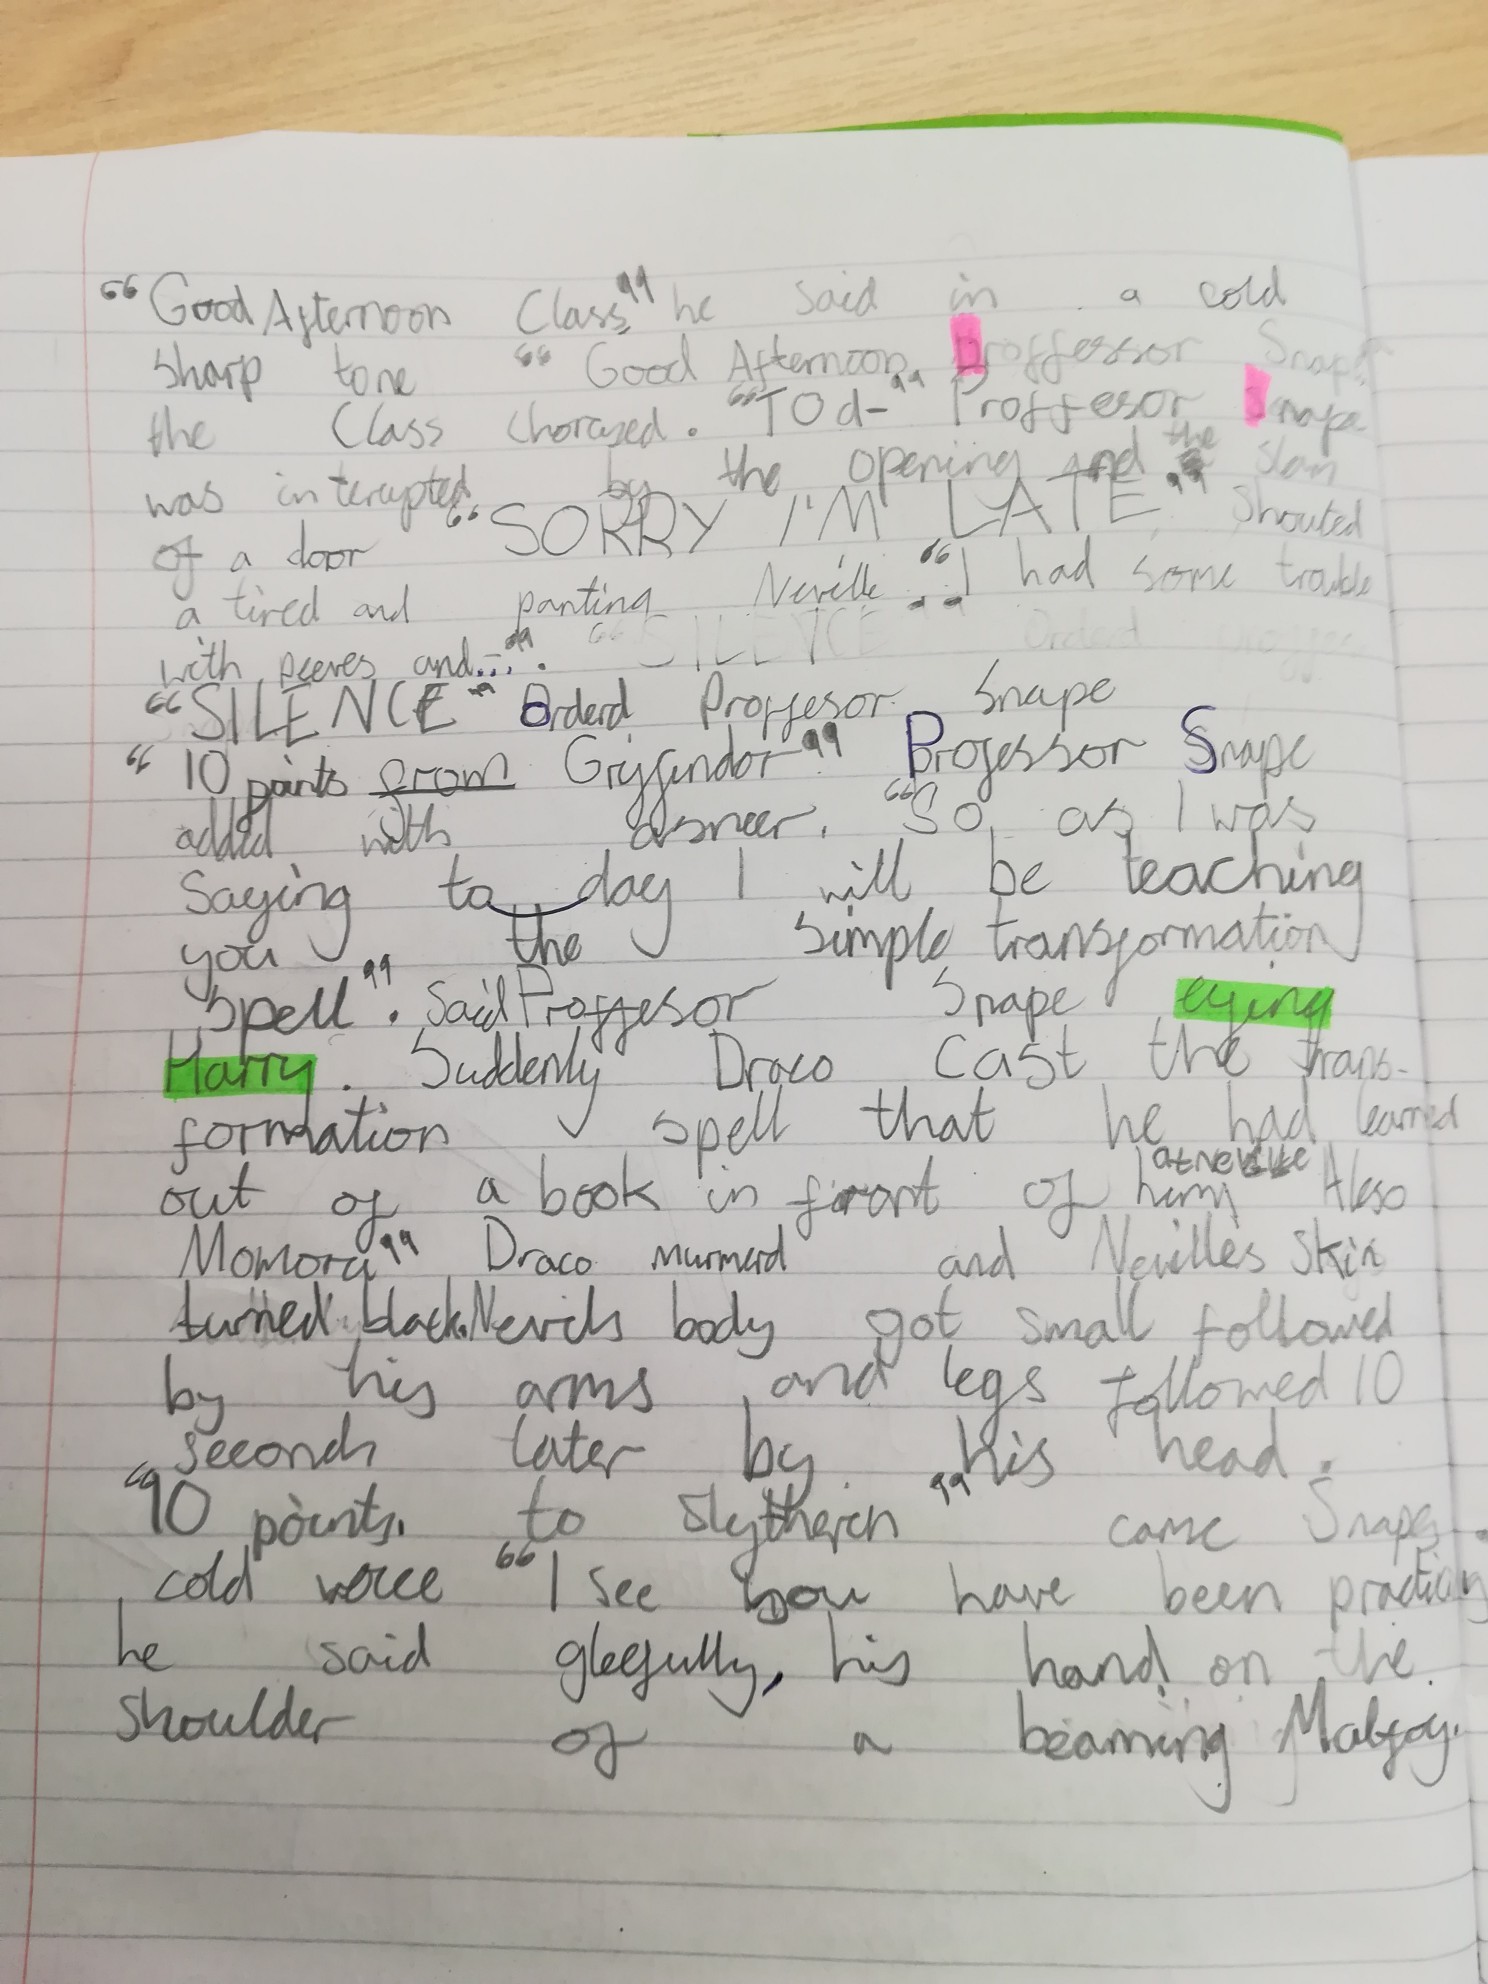 "Good Afternoon Class," he said in a cold
sharp tone "Good Afternoon Proffessor Snape
the Class chorused. "TOd-" Proffesor Snape
was interupted by the opening and the slam
of a door "SORRY I'M LATE" shouted
a tired and panting Neville. "I had some trouble
with peeves and...". "SILENCE" Orderd
"SILENCE" Orderd Proffesor Snape
"10 points from Gryffindor" Professor Snape
added with a sneer. "So, as I was
Saying to day I will be teaching
you the simple transformation
Spell". Said Proffesor Snape eyeing
Harry. Suddenly Draco Cast the trans-
formation spell that he had learned
out of a book in front of him at Neville
Momora" Draco murmerd and Neville's Skin
turned black. body got small followed
by his arms and legs followed 10
seconds later by his head.
"10 points. to Slytherin" came Snapes
cold voice "I see you have been practicing
he said gleefully, his hand on the
shoulder of a beaming Malfoy.